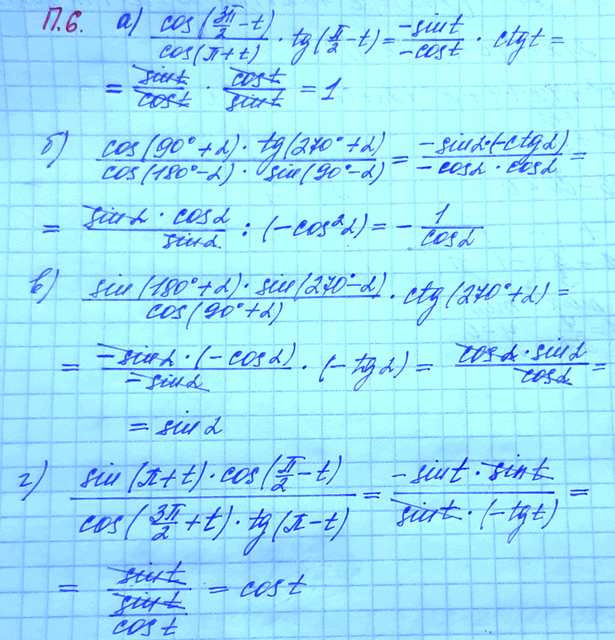 П.6. а) cos(3π/2 - t) / cos(π+t) · tg(π/2 - t) = -sint / -cost · ctgt =
= sint / cost · cost / sint = 1
б) cos(90°+α) · tg(270°+α) / cos(180°-α) · sin(90°-α) = -sinα·(-ctgα) / -cosα · cosα =
= sinα · cosα / sinα : (-cos²α) = - 1 / cosα
в) sin(180°+α) · sin(270°-α) / cos(90°+α) · ctg(270°+α) =
= -sinα · (-cosα) / -sinα · (-tgα) = cosα · sinα / cosα =
= sinα
г) sin(π+t) · cos(π/2 - t) / cos(3π/2 + t) · tg(π-t) = -sint · sint / sint · (-tgt) =
= sint / sint / cost = cost